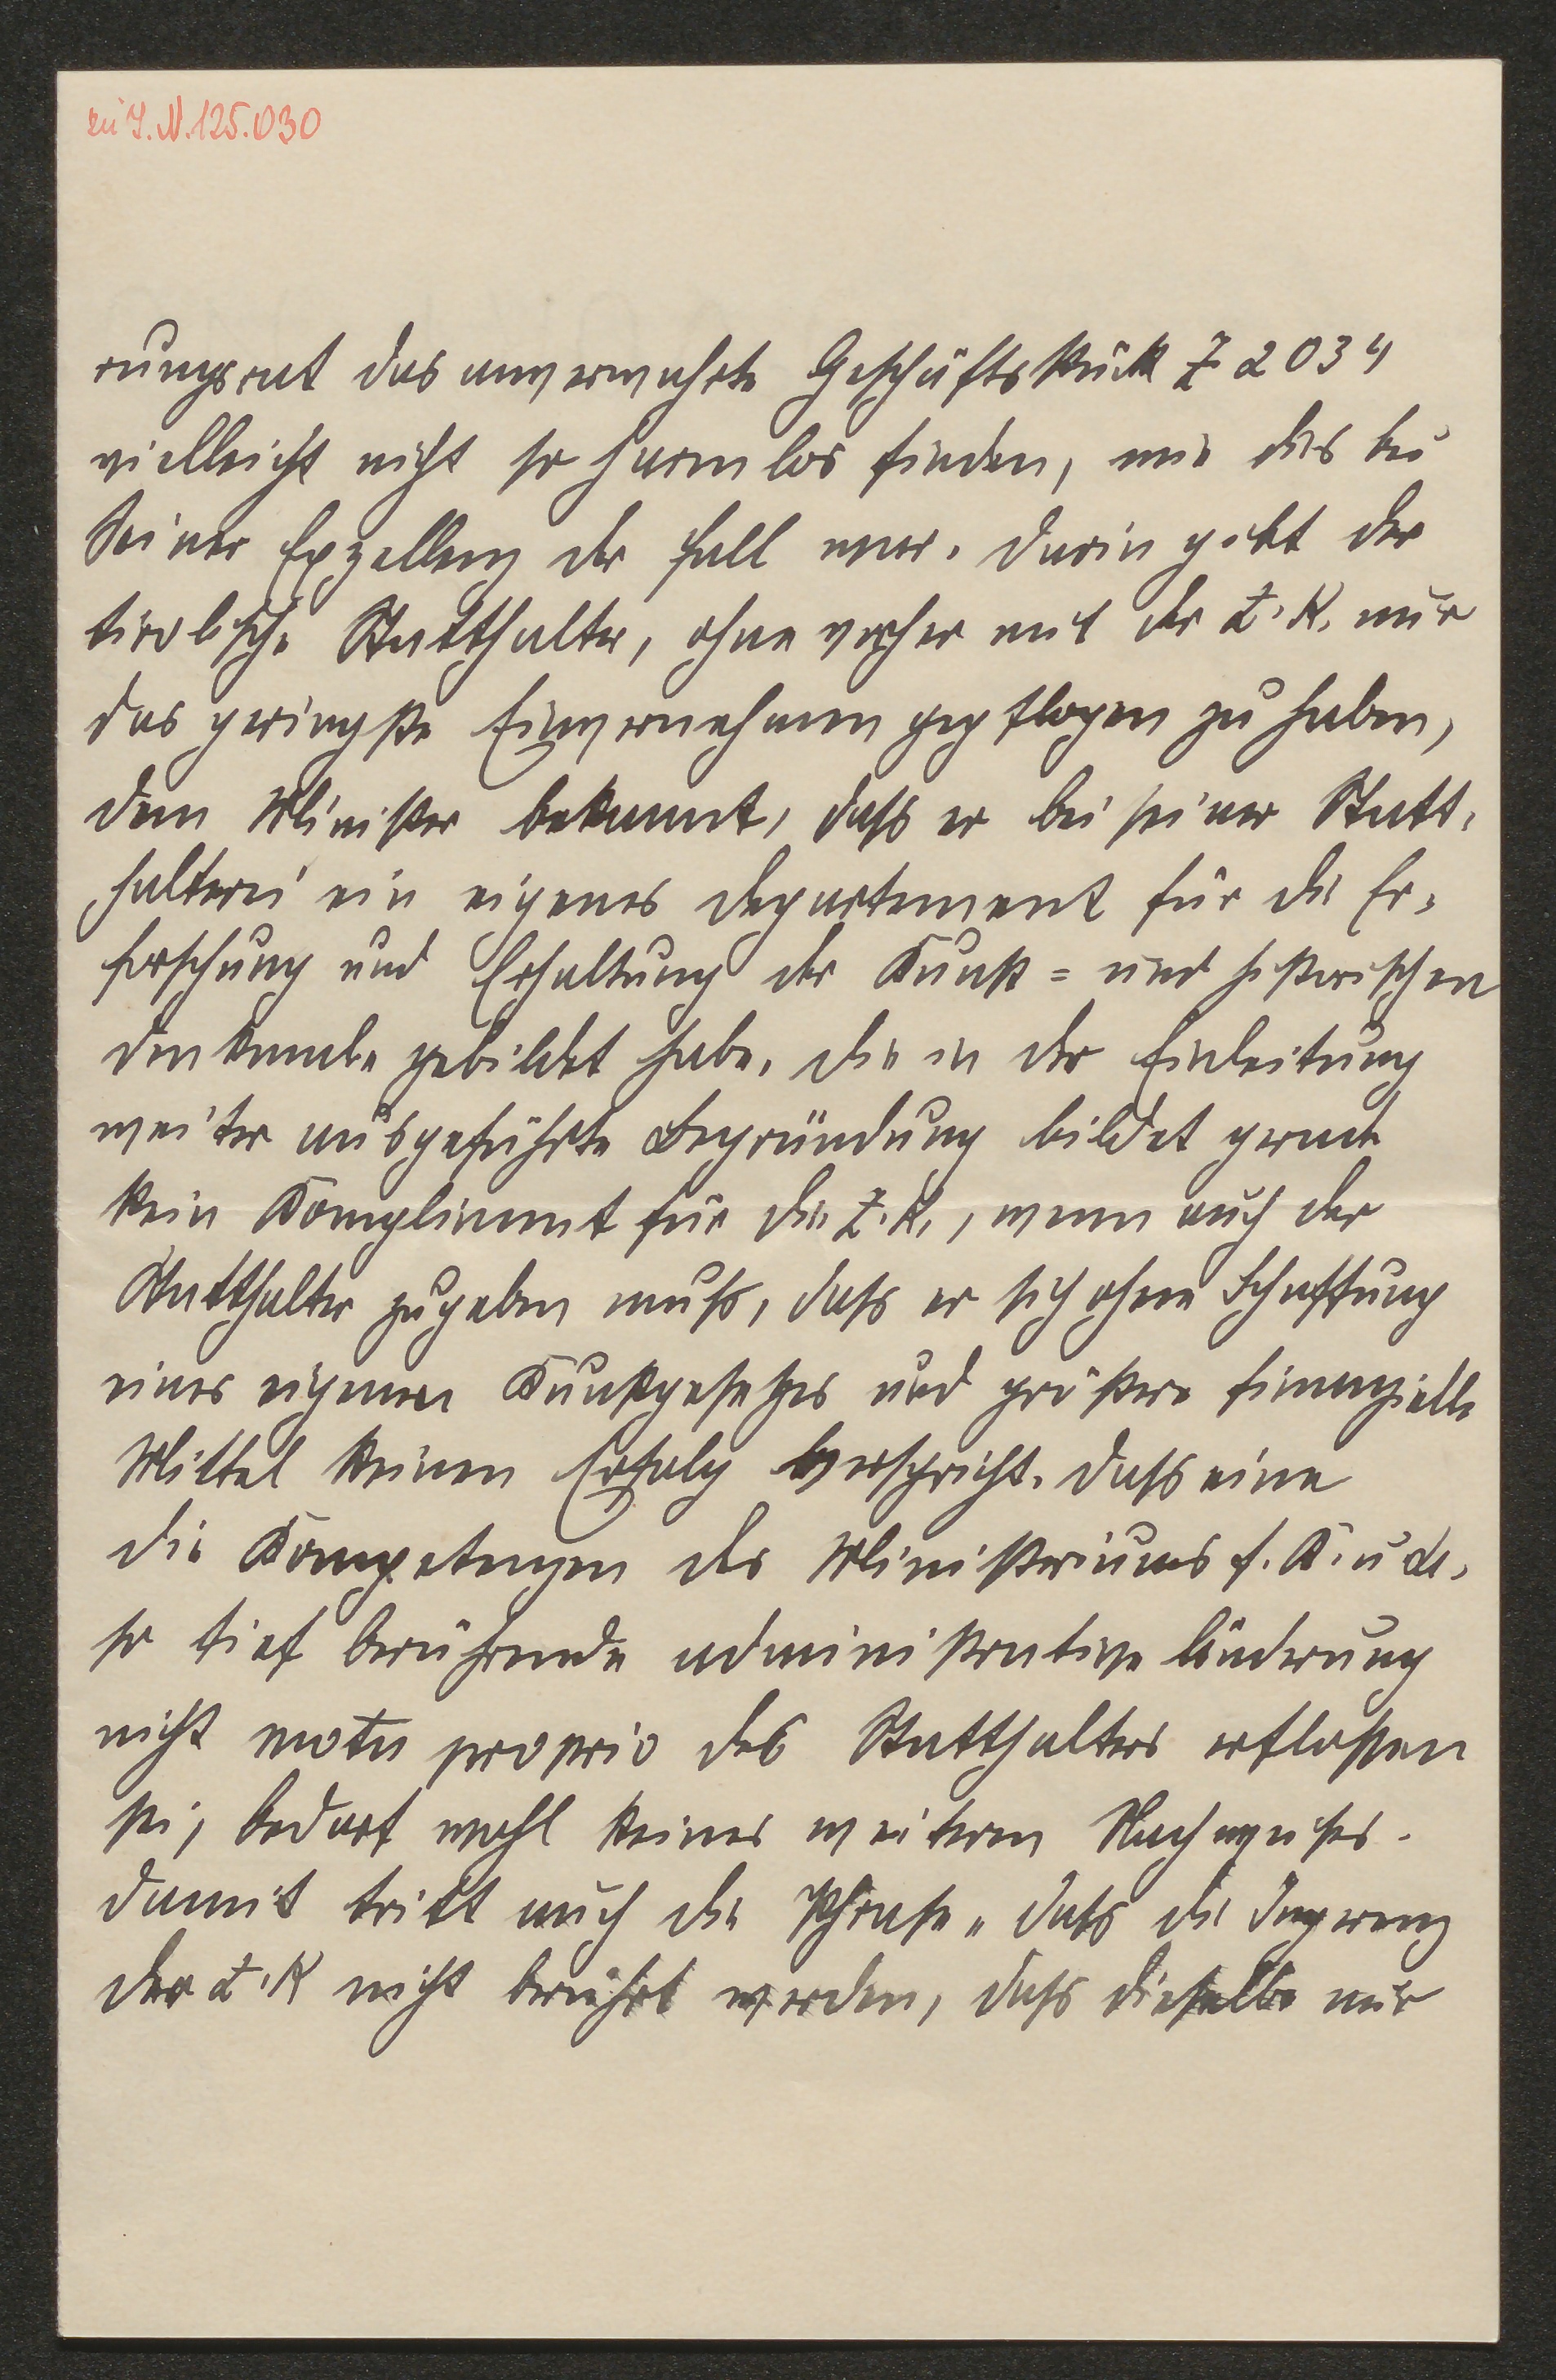 zu I.N. 125.030
rungsrat das anverwahrte Geschäftsstück Z 2034
vielleicht nicht so harmlos finden, wie dies bei
Seiner Exzellenz der Fall war. Darin gibt der
tirolische Statthalter, ohne vorher mit der Z. K. nur
das geringste Einvernehmen gepflogen zu haben,
dem Minister bekannt, dass er bei seiner Statt-
halterei ein eigenes Departement für die Er-
forschung und Erhaltung der Kunst= und historischen
Denkmale gebildet habe. Die in der Einleitung
weiter ausgeführte Begründung bildet gerade
kein Kompliment für die Z. K., wenn auch der
Statthalter zugeben muß, dass er sich ohne Schaffung
eines eigenen Kunstgesetzes und größere finanzielle
Mittel keinen Erfolg verspricht. Dass eine
die Kompetenzen des Ministeriums f. K. u U.
so tief berührende administrative Änderung
nicht motu proprio des Statthalters erflossen
sei, bedarf wohl keines weiteren Nachweises.
Damit tritt auch die Phrase „dass die Ingerenz
der Z. K nicht berührt werden, dass dieselbe nur